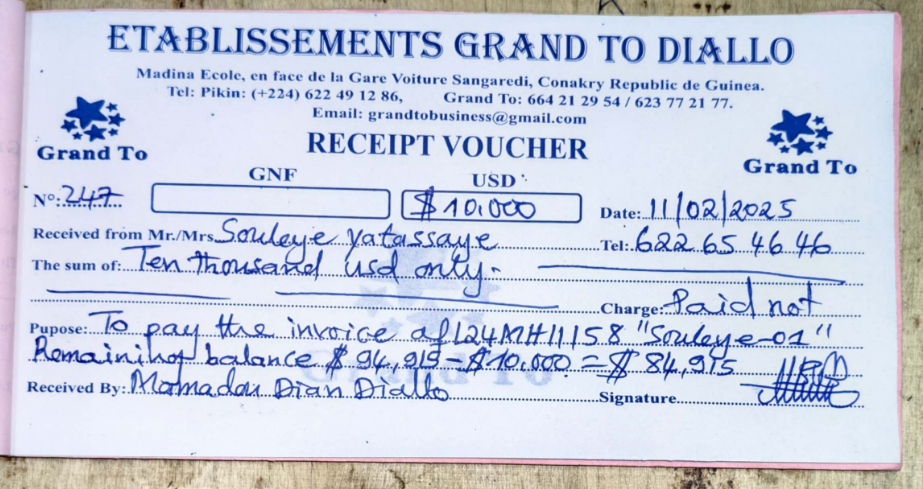 ETABLISSEMENTS GRAND TO DIALLO
Madina Ecole, en face de la Gare Voiture Sangaredi, Conakry Republic de Guinea.
Tel: Pikin: (+224) 622 49 12 86, Grand To: 664 21 29 54 / 623 77 21 77.
Email: grandtobusiness@gmail.com
Grand To RECEIPT VOUCHER Grand To
GNF USD
Nº: 247 $ 10.000 Date: 11/02/2025
Received from Mr./Mrs Souleye yatassaye Tel: 622 65 46 46
The sum of: Ten thousand usd only.
Charge: Paid not
Pupose: To pay the invoice of L24MH11158 "Souleye-01"
Remaining balance $ 94,915 - $ 10.000 = $ 84,915
Received By: Mamadou Dian Diallo Signature